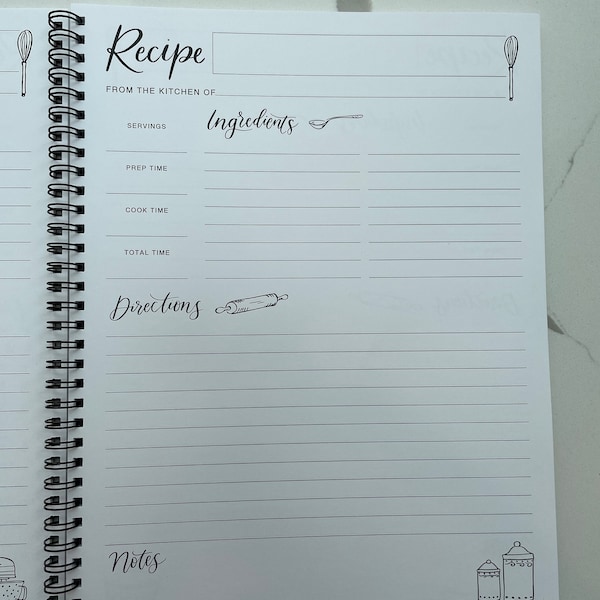 Recipe
FROM THE KITCHEN OF
SERVINGS
Ingredients
PREP TIME
COOK TIME
TOTAL TIME
Directions
Notes